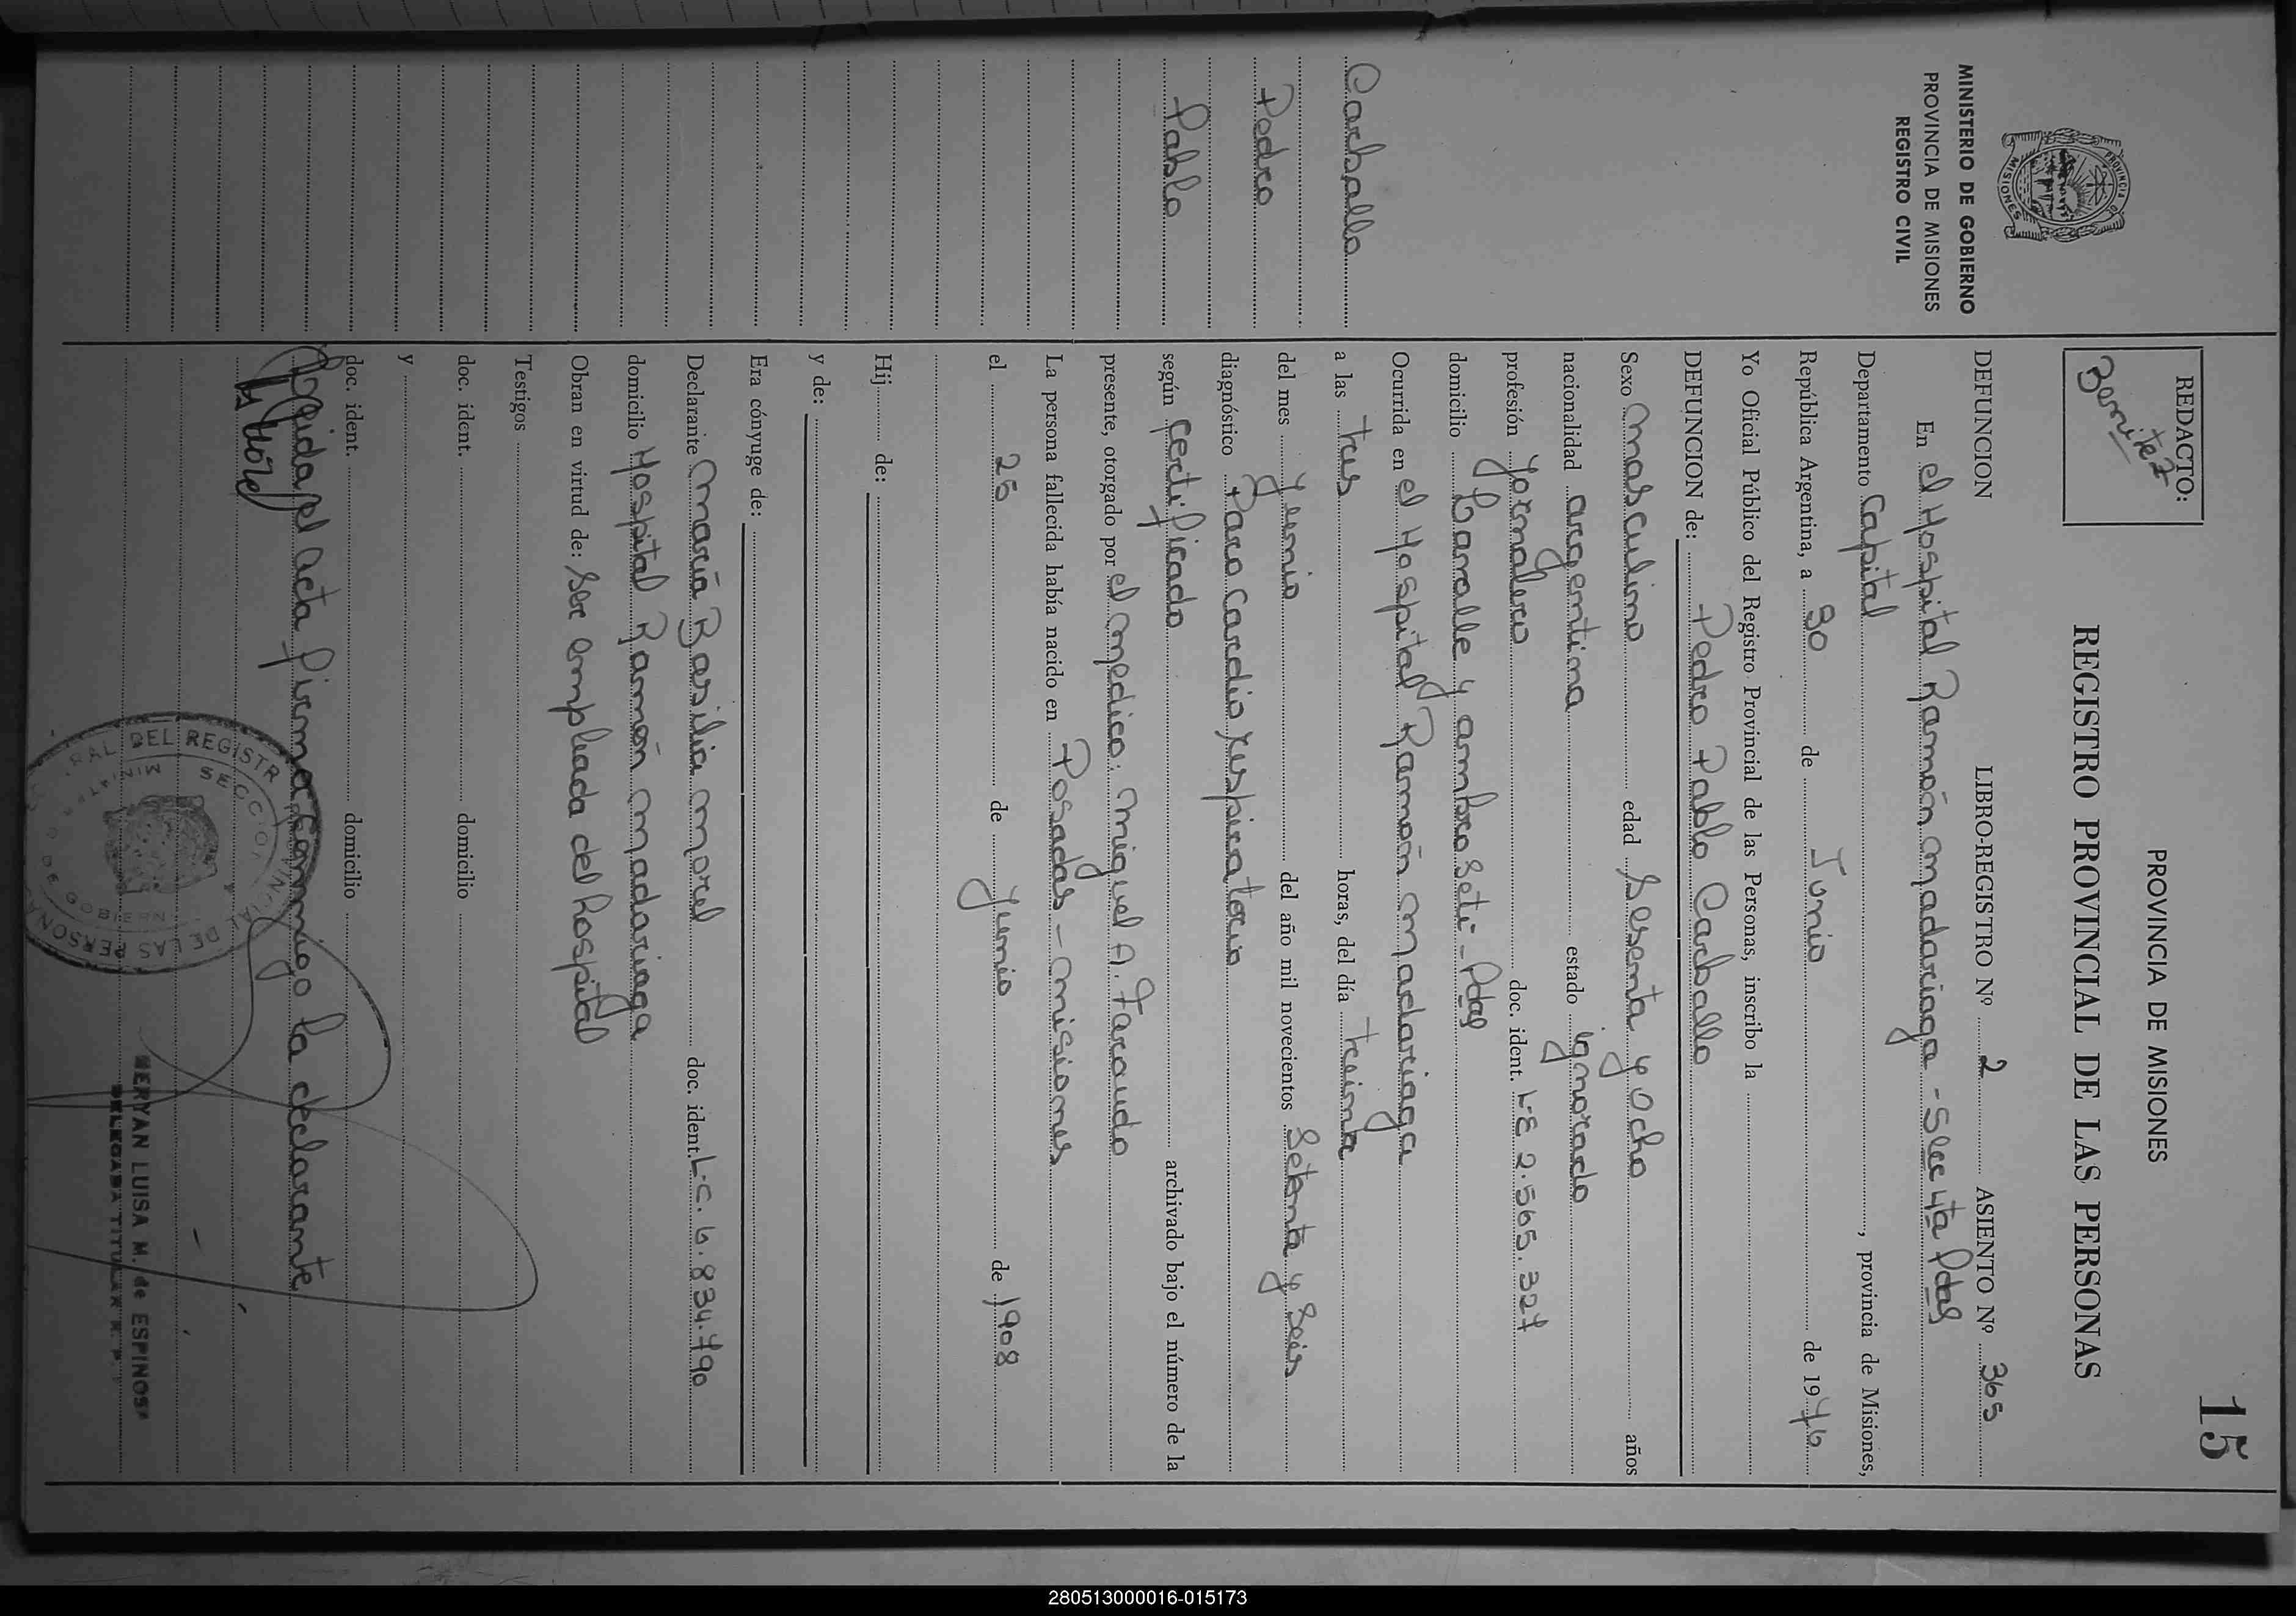 15
PROVINCIA DE MISIONES
REGISTRO PROVINCIAL DE LAS PERSONAS
REDACTO:
Benitez
PROVINCIA
MISIONES
MINISTERIO DE GOBIERNO
PROVINCIA DE MISIONES
REGISTRO CIVIL
Carballo
Pedro
Pablo
DEFUNCION LIBRO-REGISTRO Nº 2 ASIENTO Nº 365
En el Hospital Ramón Madariaga - Secc 4ta Pdas
Departamento Capital, provincia de Misiones,
República Argentina, a 30 de Junio de 1976
Yo Oficial Público del Registro Provincial de las Personas, inscribo la
DEFUNCION de: Pedro Pablo Carballo
Sexo masculino edad Sesenta y Ocho años
nacionalidad argentina estado ignorado
profesión Jornalero doc. ident. L.E 2.565.327
domicilio Lavalle y ambrosetti - Pdas
Ocurrida en el Hospital Ramón Madariaga
a las tres horas, del día treinta
del mes Junio del año mil novecientos Setenta y Seis
diagnóstico Paro Cardio respiratorio
según certificado archivado bajo el número de la
presente, otorgado por el medico: Miguel A. Faraudo
La persona fallecida había nacido en Posadas - Misiones
el 25 de Junio de 1908
Hij de:
y de:
Era cónyuge de:
Declarante María Basilia Morel doc. ident. L.C. 6.834.790
domicilio Hospital Ramón Madariaga
Obran en virtud de: Ser empleada del hospital
Testigos
doc. ident. domicilio
y
doc. ident. domicilio
Leida el acta firma conmigo la declarante
Morel
DEL REGISTR
SECCION
DE LAS PERSONA
MERYAN LUISA M. de ESPINOSA
DELEGADA TITULAR R. P.
280513000016-015173